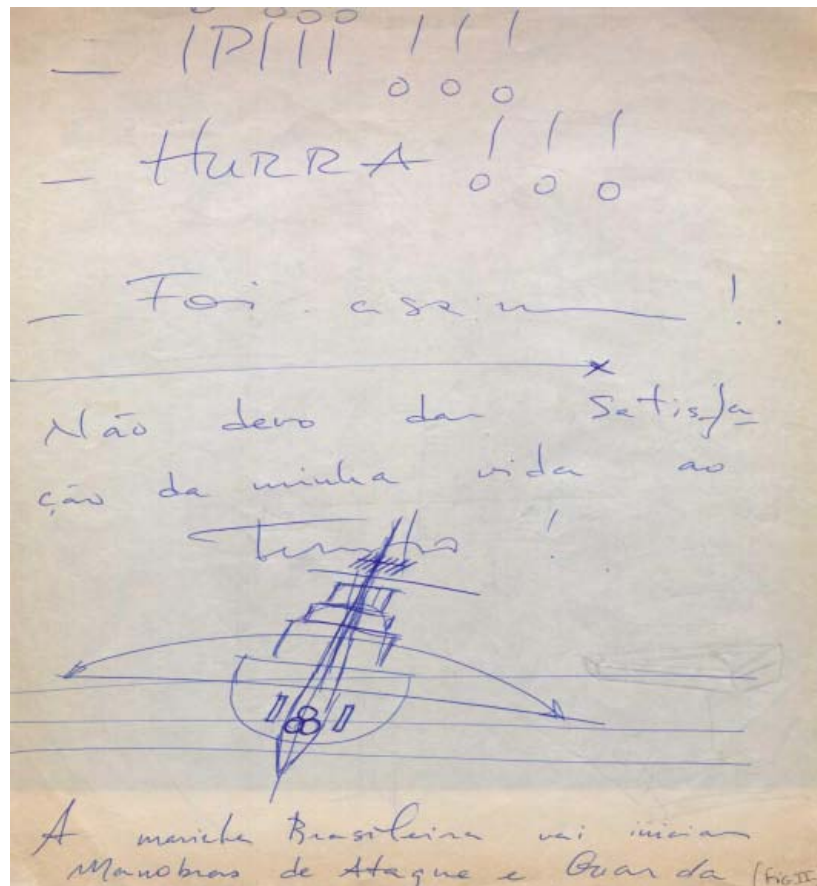 - IPIII !!!
- HURRA !!!
- Foi assim !.
Não devo dar Satisfa
ção da minha vida ao
Tempo !
A marinha Brasileira vai iniciar
Manobras de Ataque e Guarda (Fig II